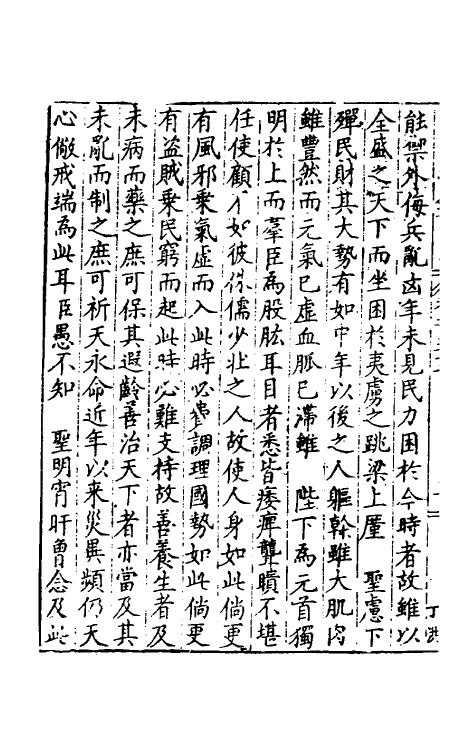 能禦外侮兵亂凶年未見民力困於今時者故雖以
全盛之天下而坐困於夷虜之跳梁上厪　聖慮下
殫民財其大勢有如中年以後之人軀幹雖大肌肉
雖豐然而元氣已虛血脈已滯雖　陛下為元首獨
明於上而羣臣為股肱耳目者悉皆痿痺聾瞶不堪
任使顧不如彼侏儒少壯之人故使人身如此倘更
有風邪乗氣虛而入此時必費調理國勢如此倘更
有盜賊乗民窮而起此時必難支持故善養生者及
未病而藥之庶可保其遐齡善治天下者亦當及其
未亂而制之庶可祈天永命近年以來災異頻仍天
心儆戒端為此耳臣愚不知　聖明宵旰曽念及此